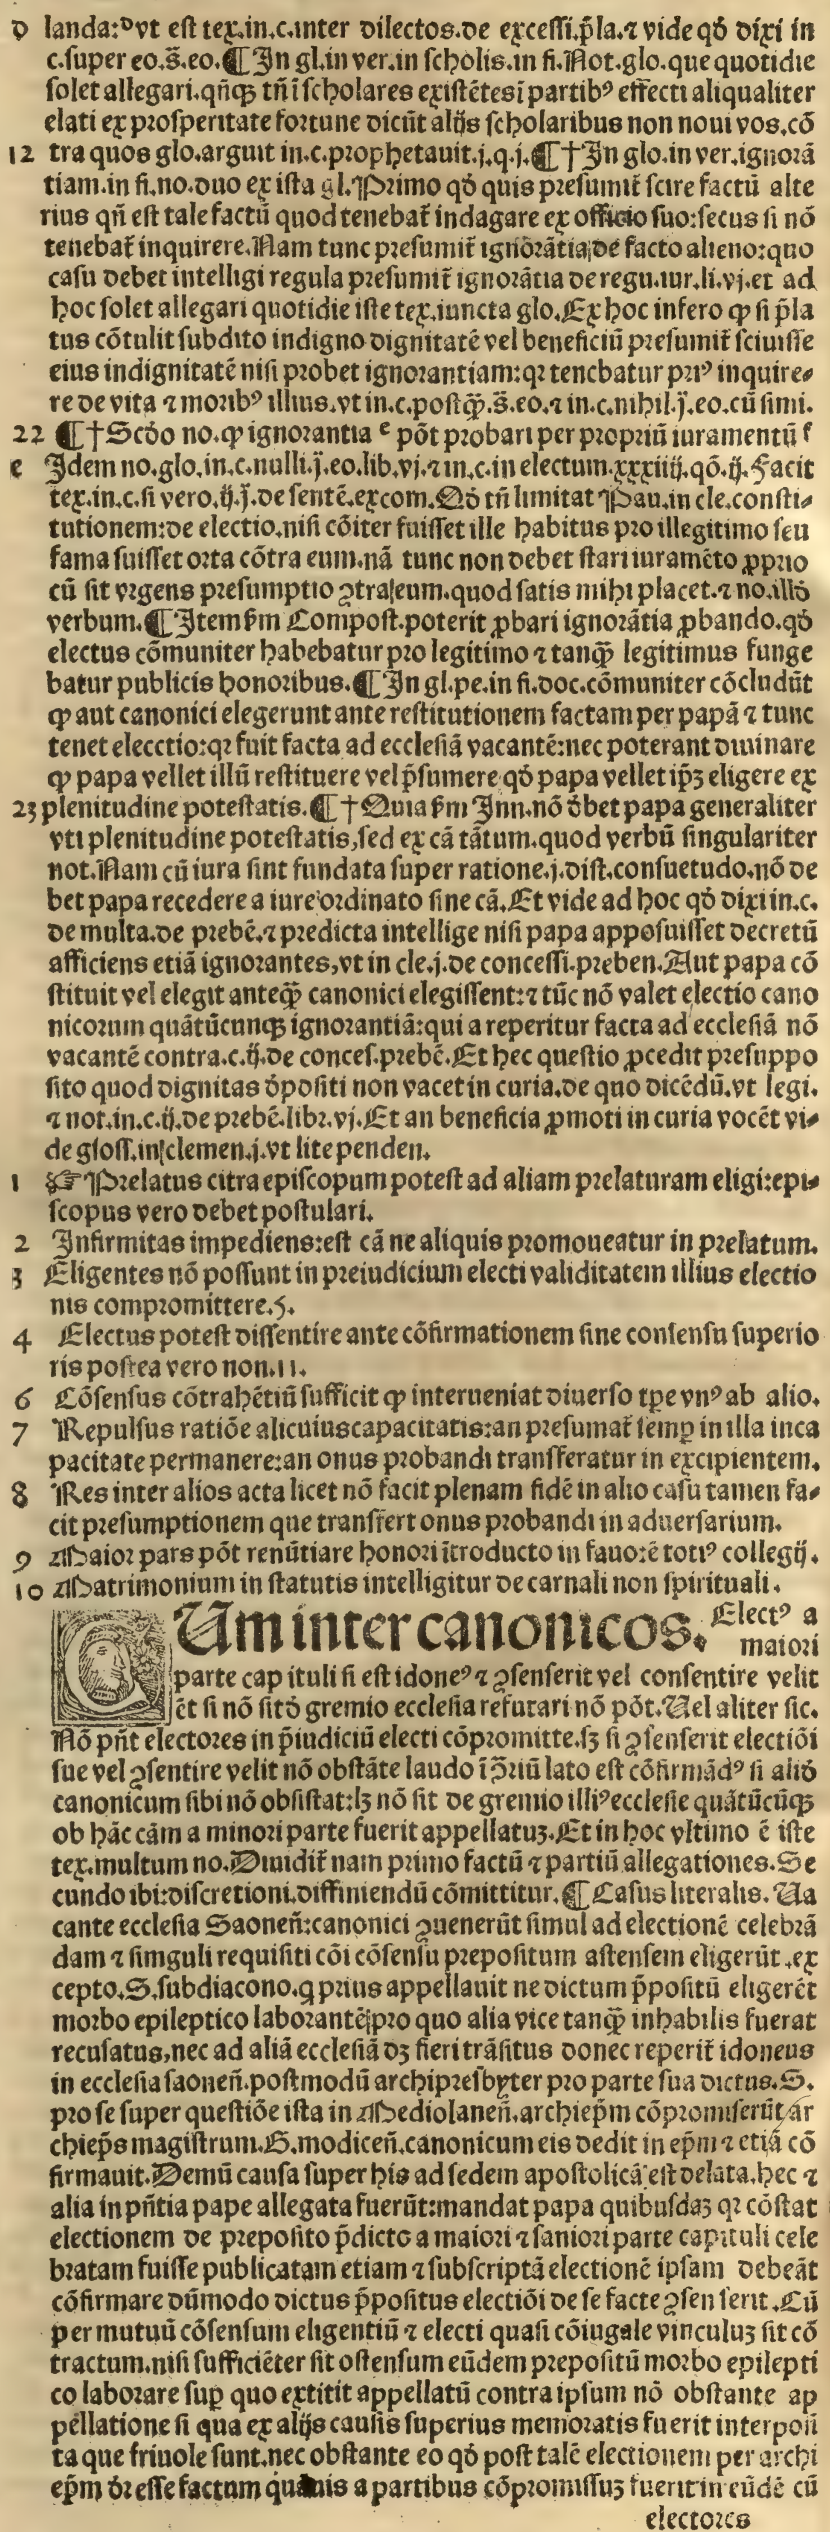 d landa:ᵈvt est tex.in.c.inter dilectos.de excessi.p̄la.⁊ vide qd̄ dixi in
c.super eo.s̄.eo.¶ In gl.in ver.in scholis.in fi.Not.glo.que quotidie
solet allegari.qñqꝫ tñ i scholares existētesī partibꝰ effecti aliqualiter
elati ex prosperitate fortune dicūt alijs scholaribus non noui vos.cō
12 tra quos glo.arguit in.c.prophetauit.j.q.j.¶ †In glo.in ver.ignorā
tiam.in fi.no.duo ex ista gl.Primo qd̄ quis presumit̄ scire factū alte
rius qñ est tale factū quod tenebat̄ indagare ex officio suo:secus si nō
tenebat̄ inquirere.Nam tunc presumit̄ ignorātia de facto alieno:quo
casu debet intelligi regula presumit̄ ignorātia de regu.iur.li.vj.et ad
hoc solet allegari quotidie iste tex.iuncta glo.Ex hoc infero ꝙ si p̄la
tus cōtulit subdito indigno dignitatē vel beneficiū presumit̄ sciuisse
eius indignitatē nisi probet ignorantiam:qꝛ tenebatur priꝰ inquire⸗
re de vita ⁊ moribꝰ illius.vt in.c.postꝙ̄.s̄.eo.⁊ in.c.nihil.j̄.eo.cū simi.
22 ¶ †Scd̄o no.ꝙ ignorantia ᵉ pōt probari per propriū iuramentū ᶠ
e Idem no.glo.in.c.nulli.j̄.eo.lib.vj.⁊ in.c.in electum.xxxiiij.qō.ij.Facit
tex.in.c.si vero.ij.j̄.de sentē.excom.Qd̄ tñ limitat Pau.in cle.consti⸗
tutionem:de electio.nisi cōiter fuisset ille habitus pro illegitimo seu
fama fuisset orta cōtra eum.nā tunc non debet stari iuramēto ꝓprio
cū sit vrgens presumptio ꝯtra eum.quod satis mihi placet.⁊ no.illd̄
verbum.¶ Item ẜm Compost.poterit ꝓbari ignorātia ꝓbando.qd̄
electus cōmuniter habebatur pro legitimo ⁊ tanꝙ̄ legitimus funge
batur publicis honoribus.¶ In gl.pe.in fi.doc.cōmuniter cōcludūt
ꝙ aut canonici elegerunt ante restitutionem factam per papā ⁊ tunc
tenet elecctio:qꝛ fuit facta ad ecclesiā vacantē:nec poterant diuinare
ꝙ papa vellet illū restituere vel p̄sumere qd̄ papa vellet ip̄ꝫ eligere ex
23 plenitudine potestatis.¶ †Quia ẜm Inn.nō d̄bet papa generaliter
vti plenitudine potestatis,sed ex cā tātum.quod verbū singulariter
not.Nam cū iura sint fundata super ratione.j.dist.consuetudo.nō de
bet papa recedere a iure ordinato sine cā.Et vide ad hoc qd̄ dixi in.c.
de multa.de prebē.⁊ predicta intellige nisi papa apposuisset decretū
afficiens etiā ignorantes,vt in cle.j.de concessi.preben.Aut papa cō
stituit vel elegit anteꝙ̄ canonici elegissent:⁊ tūc nō valet electio cano
nicorum quātūcunqꝫ ignorantiā:qui a reperitur facta ad ecclesiā nō
vacantē contra.c.ij.de conces.prebē.Et hec questio ꝓcedit presuppo
sito quod dignitas d̄positi non vacet in curia.de quo dicēdū.vt legi.
⁊ not.in.c.ij.de prebē.libr.vj.Et an beneficia ꝓmoti in curia vocēt vi⸗
de gloss.in clemen.j.vt lite penden.
1 ☞Prelatus citra episcopum potest ad aliam prelaturam eligi:epi⸗
scopus vero debet postulari.
2 Infirmitas impediens:est cā ne aliquis promoueatur in prelatum.
3 Eligentes nō possunt in preiudicium electi validitatem illius electio
nis compromittere.5.
4 Electus potest dissentire ante cōfirmationem sine consensu superio
ris postea vero non.11.
6 Cōsensus cōtrahētiū sufficit ꝙ interueniat diuerso tp̄e vnꝰ ab alio.
7 Repulsus ratiōe alicuiuscapacitatis:an presumat̄ semꝑ in illa inca
pacitate permanere:an onus probandi transferatur in excipientem.
8 Res inter alios acta licet nō facit plenam fidē in alio casu tamen fa⸗
cit presumptionem que transfert onus probandi in aduersarium.
9 Maior pars pōt renūtiare honori ītroducto in fauorē totiꝰ collegij.
10 Matrimonium in statutis intelligitur de carnali non spirituali.
CUm inter canonicos. Electꝰ a
maiori
parte cap ituli si est idoneꝰ ⁊ ꝯsenserit vel consentire velit
ēt si nō sit d̄ gremio ecclesia refutari nō pōt.Uel aliter sic.
Nō pñt electores in p̄iudiciū electi cōpromitte.sꝫ si ꝯsenserit electiōi
sue vel ꝯsentire velit nō obstāte laudo ī p̄riū lato est cōfirmādꝰ si aliō
canonicum sibi nō obsistat:lꝫ nō sit de gremio illiꝰecclesie quātūcūqꝫ
ob hāc cām a minori parte fuerit appellatuꝫ.Et in hoc vltimo ē iste
tex.multum no.Diuidit̄ nam primo factū ⁊ partiū allegationes.Se
cundo ibi:discretioni.diffiniendū cōmittitur.¶ Casus literalis.Ua
cante ecclesia Saoneñ:canonici ꝯuenerūt simul ad electionē celebrā
dam ⁊ simguli requisiti cōi cōsensu prepositum astensem eligerūt.ex
cepto.S.subdiacono.q̇ prius appellauit ne dictum p̄positū eligerēt
morbo epileptico laborantē pro quo alia vice tanꝙ̄ inhabilis fuerat
recusatus,nec ad aliā ecclesiā dꝫ fieri trāsitus donec reperit̄ idoneus
in ecclesia saoneñ.postmodū archipresbyter pro parte sua dictus.S.
pro se super questiōe ista in Mediolaneñ.archiep̄m cōpromiserūt ar
chiep̄s magistrum.G.modiceñ.canonicum eis dedit in ep̄m ⁊ etiā cō
firmauit.Demū causa super his ad sedem apostolicā est delata.hec ⁊
alia in pñtia pape allegata fuerūt:mandat papa quibusdaꝫ qꝛ cōstat
electionem de preposito p̄dicto a maiori ⁊ saniori parte capituli cele
bratam fuisse publicatam etiam ⁊ subscriptā electionē ipsam debeāt
cōfirmare dūmodo dictus p̄positus electiōi de se facte ꝯsen serit.Cū
per mutuū cōsensum eligentiū ⁊ electi quasi cōiugale vinculuꝫ sit cō
tractum.nisi sufficiēter sit ostensum eūdem prepositū morbo epilepti
co laborare suꝑ quo extitit appellatū contra ipsum nō obstante ap
pellatione si qua ex alijs causis superius memoratis fuerit interposi
ta que friuole sunt.nec obstante eo qd̄ post talē electionem per archi
ep̄m d̄r esse factum quāuis a partibus cōpromissuꝫ fuerit in eūdē cū
electores